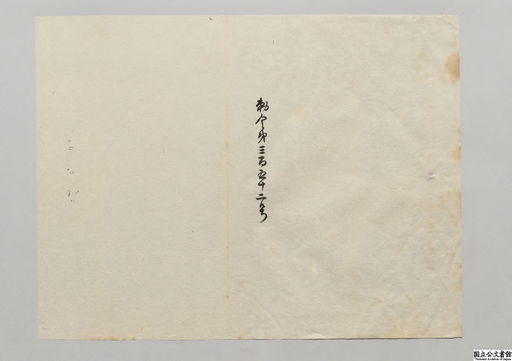 勅令第三百五十二号
国立公文書館
National Archives of Japan